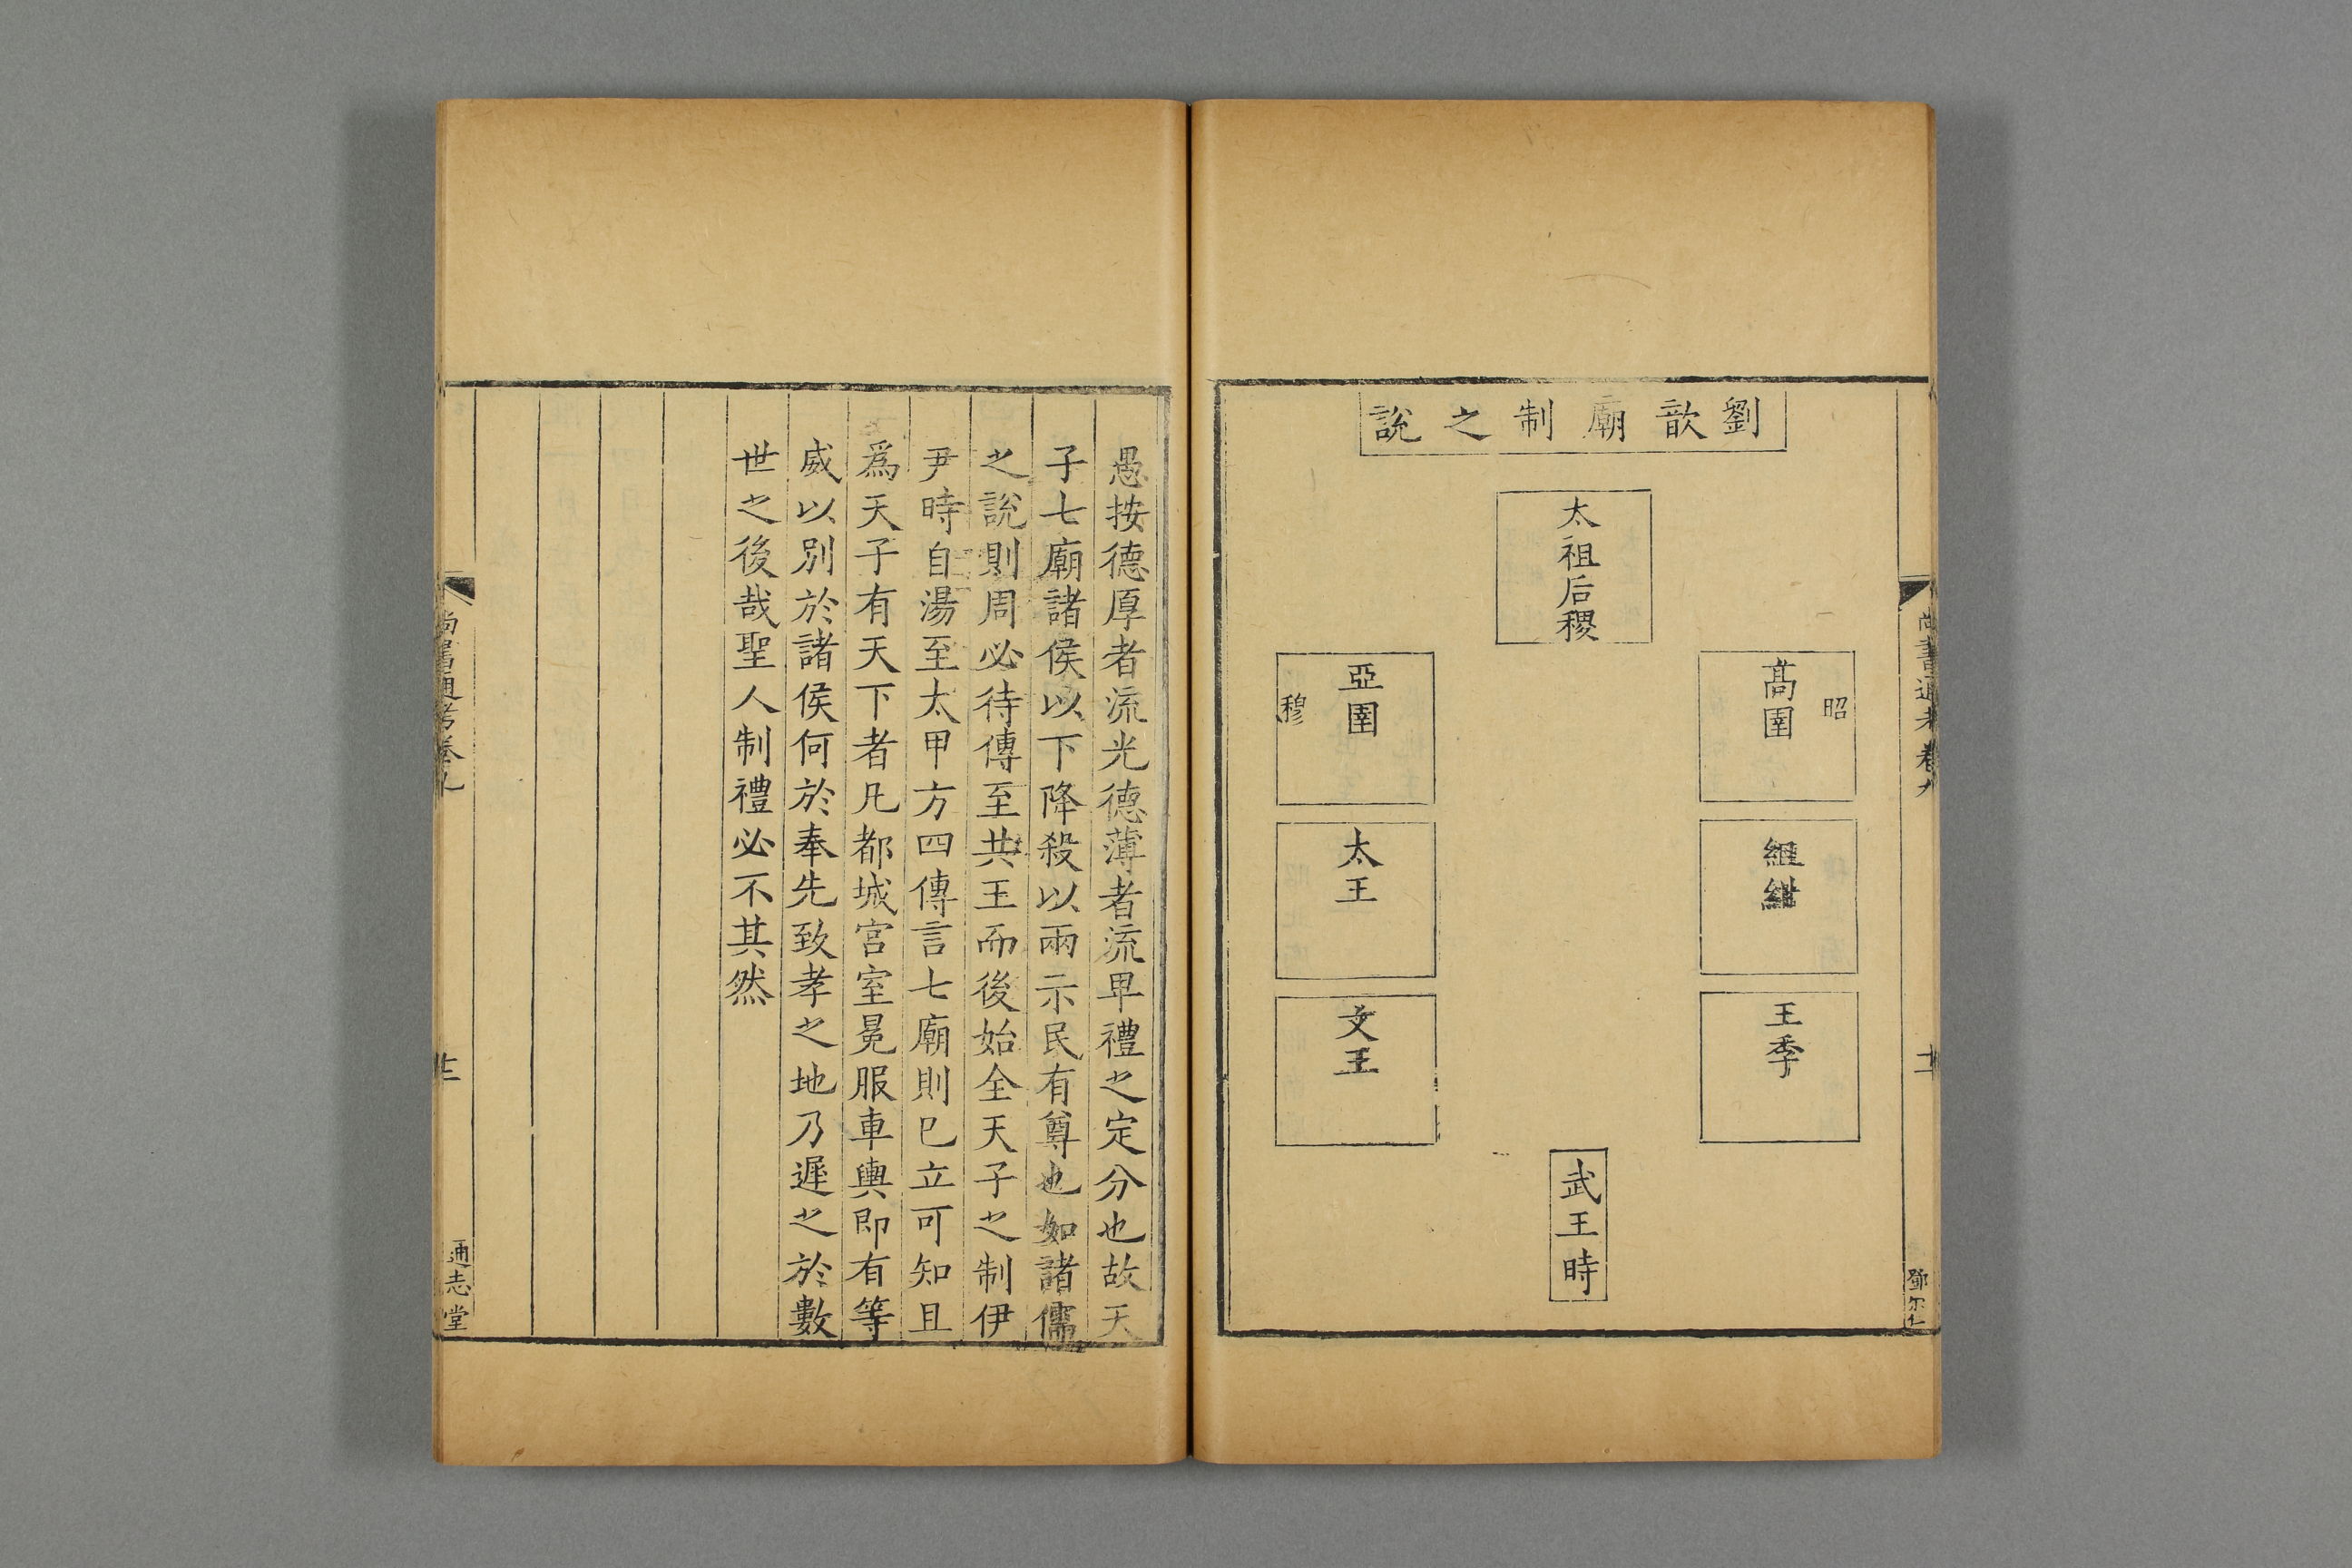 劉歆廟制之說
太祖后稷
昭
高圉
組紺
王季
亞圉
穆
太王
文王
武王時
尚書通考卷九
鄧尔仁
愚按德厚者流光德薄者流𤰞禮之定分也故天
子七廟諸侯以下降殺以兩示民有尊也如諸儒
之說則周必待傳至共王而後始全天子之制伊
尹時自湯至太甲方四傳言七廟則已立可知且
爲天子有天下者凡都城宮室冕服車輿即有等
威以別於諸侯何於奉先致孝之地乃遲之於數
世之後哉聖人制禮必不其然
尚書通考卷九
通志堂